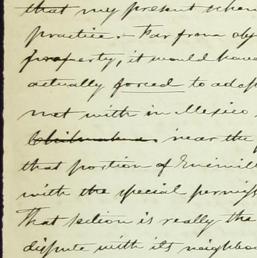 that my present schem
practice. Far from ob
property, it would have
actually forced to adop
met with in Mexico
Chihuahua near the
that portion of
with the special permis
That section is really the
dispute with its neighbo